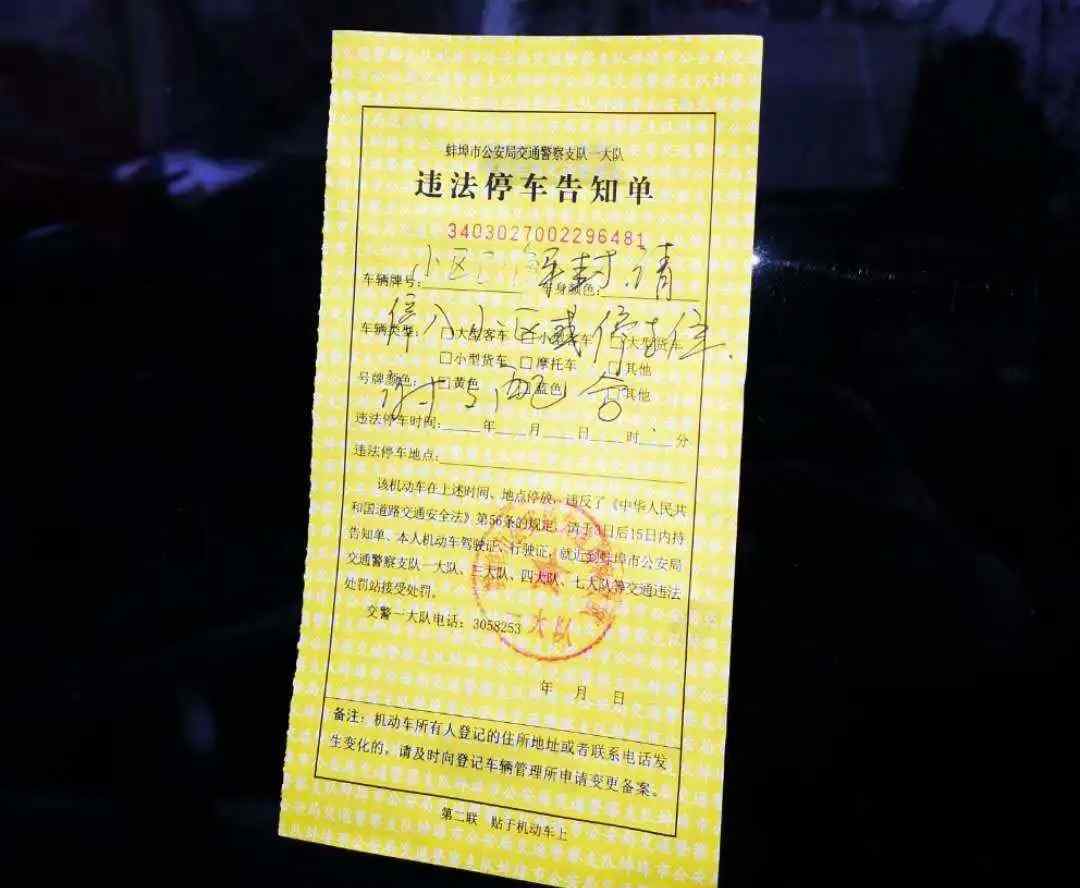 蚌埠市公安局交通警察支队一大队
违法停车告知单
3403027002296481
小区已解封.请
车辆牌号: 车身颜色:
停入小区或停车位.
车辆类型: □大型客车 □小型客车 □大型货车
□小型货车 □摩托车 □其他
谢与配合
号牌颜色: □黄色 □蓝色 □其他
违法停车时间: 年 月 日 时 分
违法停车地点:
该机动车在上述时间、地点停放,违反了《中华人民共
和国道路交通安全法》第56条的规定,请于3日后15日内持
告知单、本人机动车驾驶证、行驶证,就近到蚌埠市公安局
交通警察支队一大队、三大队、四大队、七大队等交通违法
处罚站接受处罚。
交警一大队电话:3058253
一大队
年 月 日
备注:机动车所有人登记的住所地址或者联系电话发
生变化的,请及时向登记车辆管理所申请变更备案。
第二联 贴于机动车上